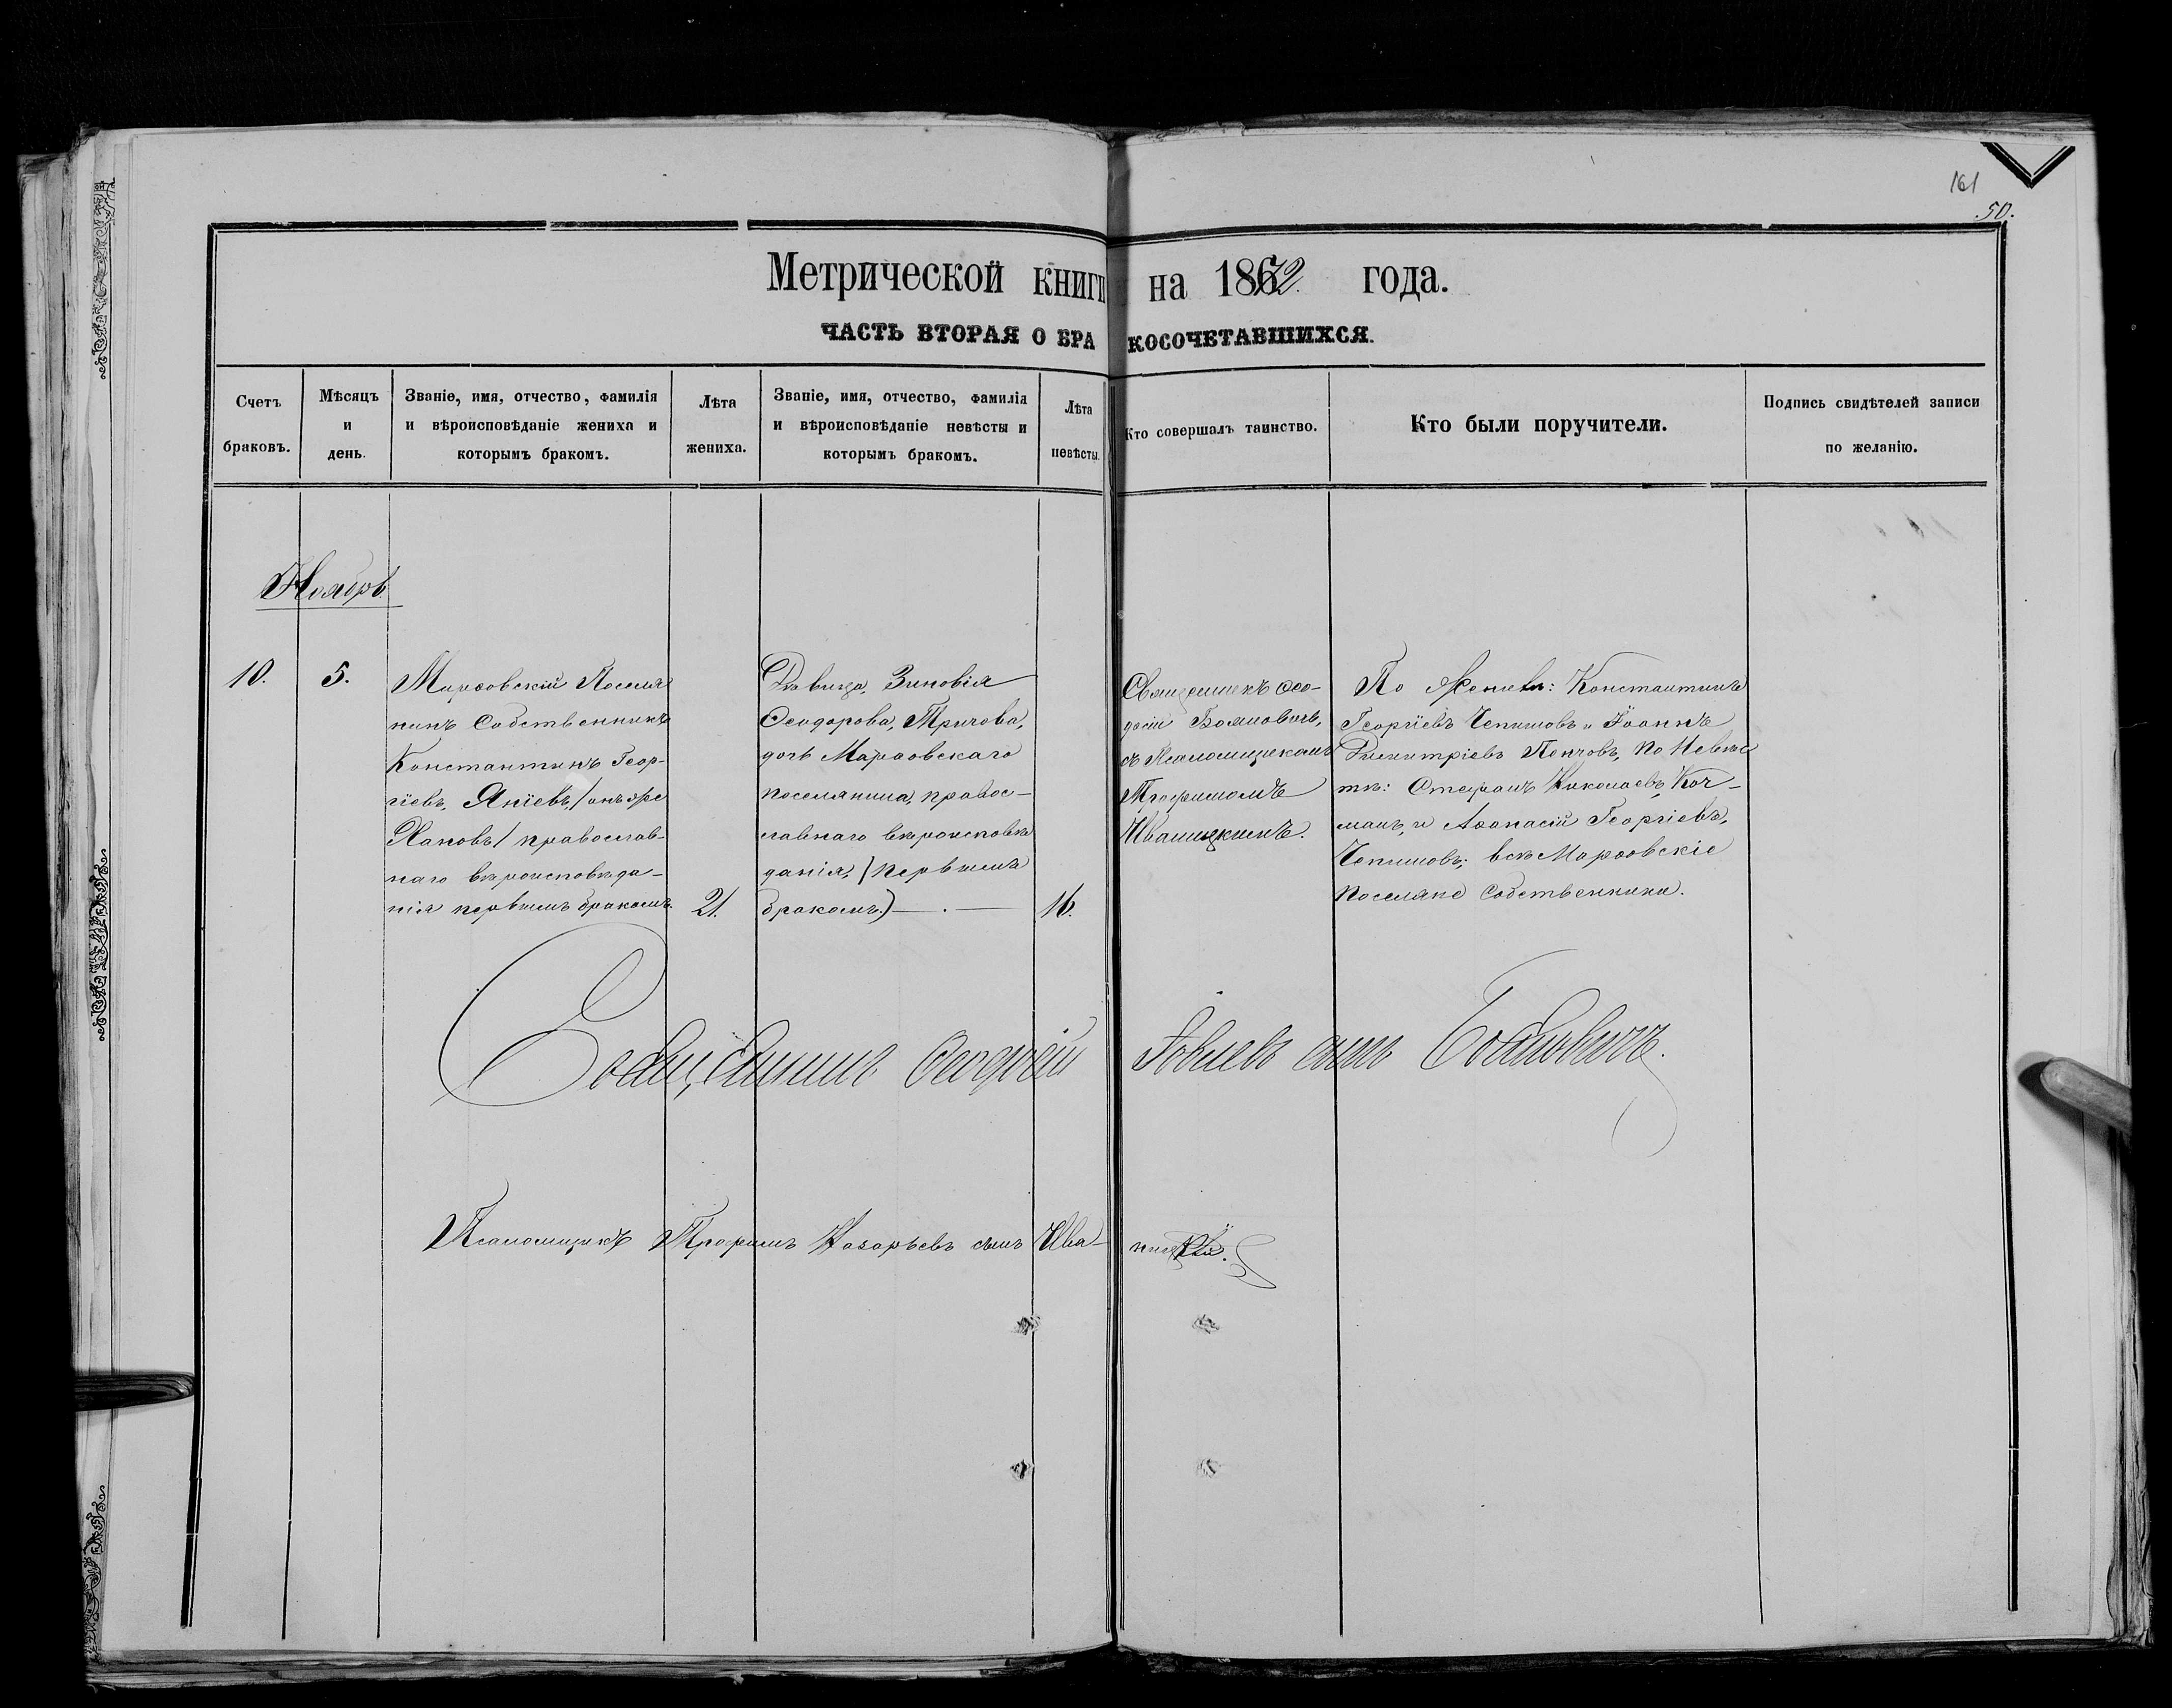 161
50.
Метрической книги на 1872 года.
ЧАСТЬ ВТОРАЯ О БРАКОСОЧЕТАВШИХСЯ.
Счетъ
браковъ.
Мѣсяцъ
и
день.
Званіе, имя, отчество, фамилія
и вѣроисповѣданіе жениха и
которымъ бракомъ.
Лѣта
жениха.
Званіе, имя, отчество, фамилія
и вѣроисповѣданіе невѣсты и
которымъ бракомъ.
Лѣта
невѣсты.
Кто совершалъ таинство.
Кто были поручители.
Подпись свидѣтелей записи
по желанію.
Ноябрь
10.
5.
Марѳовскій Поселя
нинъ Собственникъ
Константинъ Геор-
гіевъ, Яніевъ, /онъ же
Хановъ/ православ-
наго вѣроисповѣда-
нія первымъ бракомъ.
21.
Дѣвица, Зиновія
Ѳеодорова, Тричова,
дочь Марѳовскаго
поселянина, правос-
лавнаго вѣроисповѣ
данія, /первымъ
бракомъ)
16.
Священникъ Ѳео-
досій Бояновичъ,
съ Псаломщикомъ
Трофимомъ
Иваницкимъ.
По Женихѣ: Константинъ
Георгіевъ Чепишовъ и Іоаннъ
Димитріевъ Пенчовъ, По Невѣс
тѣ: Стефанъ Николаевъ, Коч-
манъ, и Аѳанасій Георгіевъ,
Чепишовъ; всѣ Марѳовскіе
поселяне Собственники.
Священникъ Ѳеодосій Іовлевъ сынъ Бояновичъ.
Псаломщикъ Трофимъ Назарьевъ сынъ Ива-ницкій.